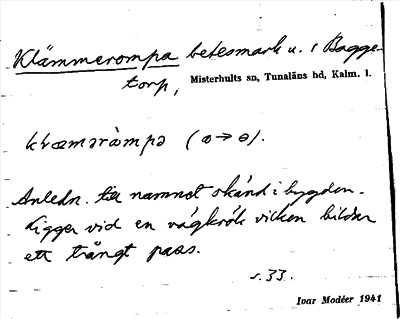 Klämmerompa betesmark u. i Bagge-
torp, Misterhults sn, Tunaläns hd, Kalm. l.
klæməràmpə (a → ɵ).
Anledn. till namnet okänd i bygden.
Ligger vid en vägkrök vilken bildar
ett trångt pass.
s. 33.
Ivar Modéer 1941